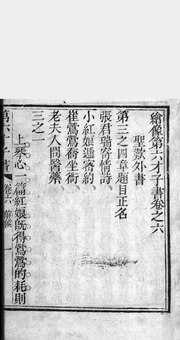 繪像第六才子書卷之六
聖歎外書
第三之四章題目正名
張君瑞寄情詩
小紅娘遞密約
崔鶯鶯喬坐衙
老夫人問醫藥
三之一
上琴心一篇紅娘旣得鶯鶯的耗則
第六才子書
卷六